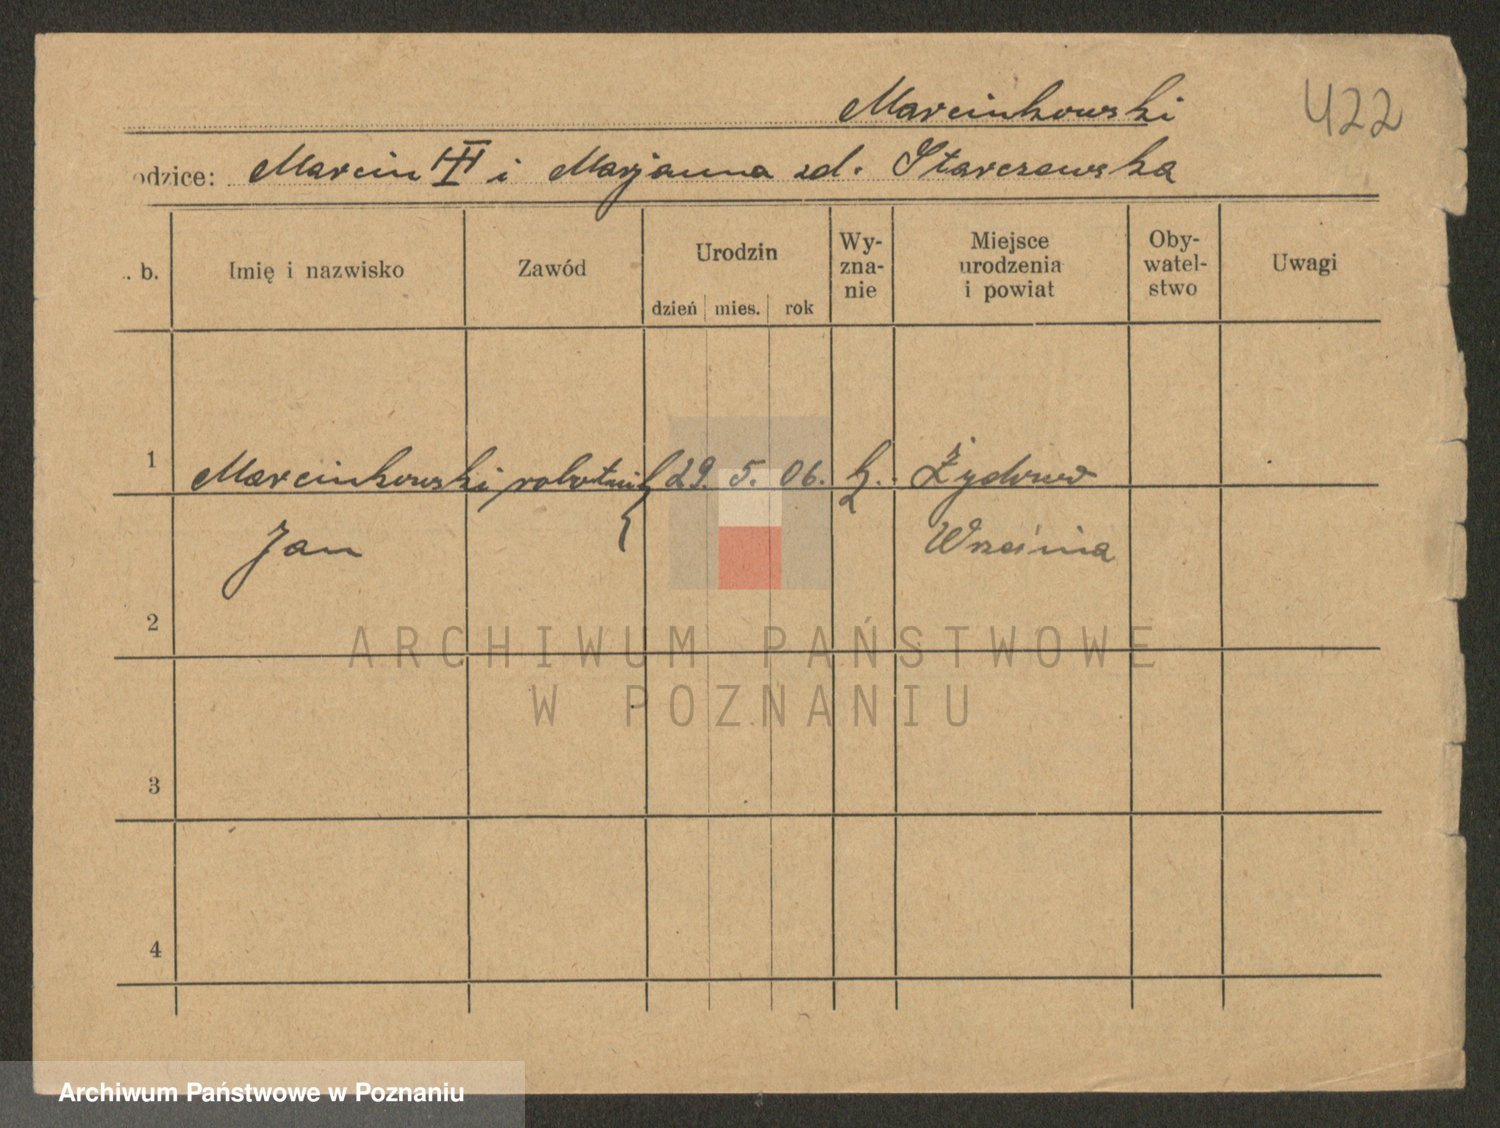 Marcinkowski
422
odzice: Marcin i Marjanna zd. Starczewska
. b.
Imię i nazwisko
Zawód
Urodzin
dzień mies. rok
Wy-
zna-
nie
Miejsce
urodzenia
i powiat
Oby-
watel-
stwo
Uwagi
1 Marcinkowski robotnik 29. 5. 06. k. Żydowo
Jan Września
2
3
4
ARCHIWUM PAŃSTWOWE
W POZNANIU
Archiwum Państwowe w Poznaniu